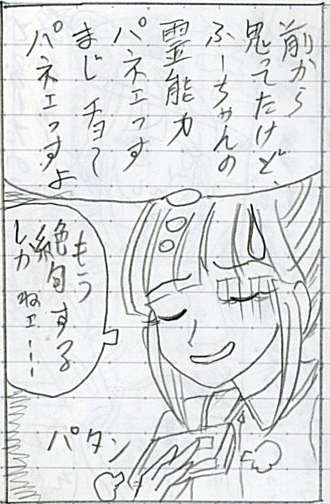 前から
思ってたけど、
ふーちゃんの
霊能力
パネェっす
まじ チョー
パネェっすよ
もう
絶句する
しか ねェ――
パタン